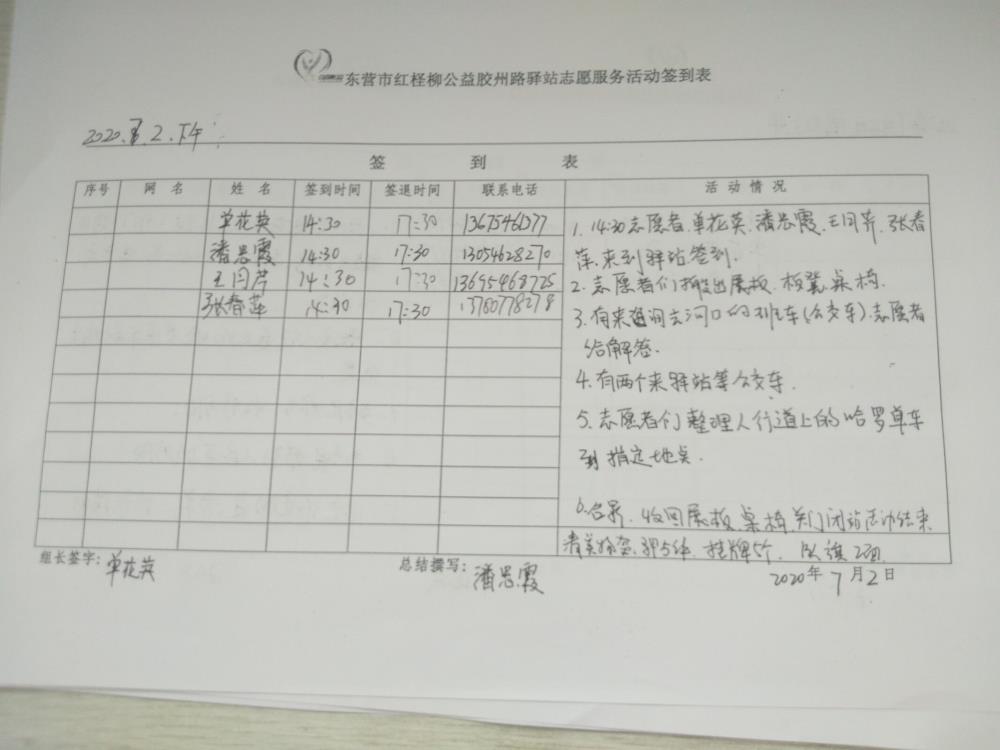 东营市红柽柳公益胶州路驿站志愿服务活动签到表
2020. 2.下午
签 到 表
序号 网 名 姓 名 签到时间 签退时间 联系电话 活 动 情 况
单花英 14:30 17:30 13675461377
潘思霞 14:30 17:30 13054628270
王闩芹 14:30 17:30 13655468725
张春萍 14:30 17:30 13780778278
1. 14:30志愿者.单花英.潘思霞.王闩芹.张春
萍.来到驿站签到.
2. 志愿者们搬出展板.板凳桌椅.
3. 有来咨询去河口的班车(公交车).志愿者
给解答.
4. 有两个来驿站等公交车.
5. 志愿者们整理人行道上的哈罗单车
到指定地点.
6. 收回展板.桌椅.关门闭站活动结束
挂牌5个. 队旗2面
组长签字:单花英 总结撰写:潘思霞 2020年7月2日